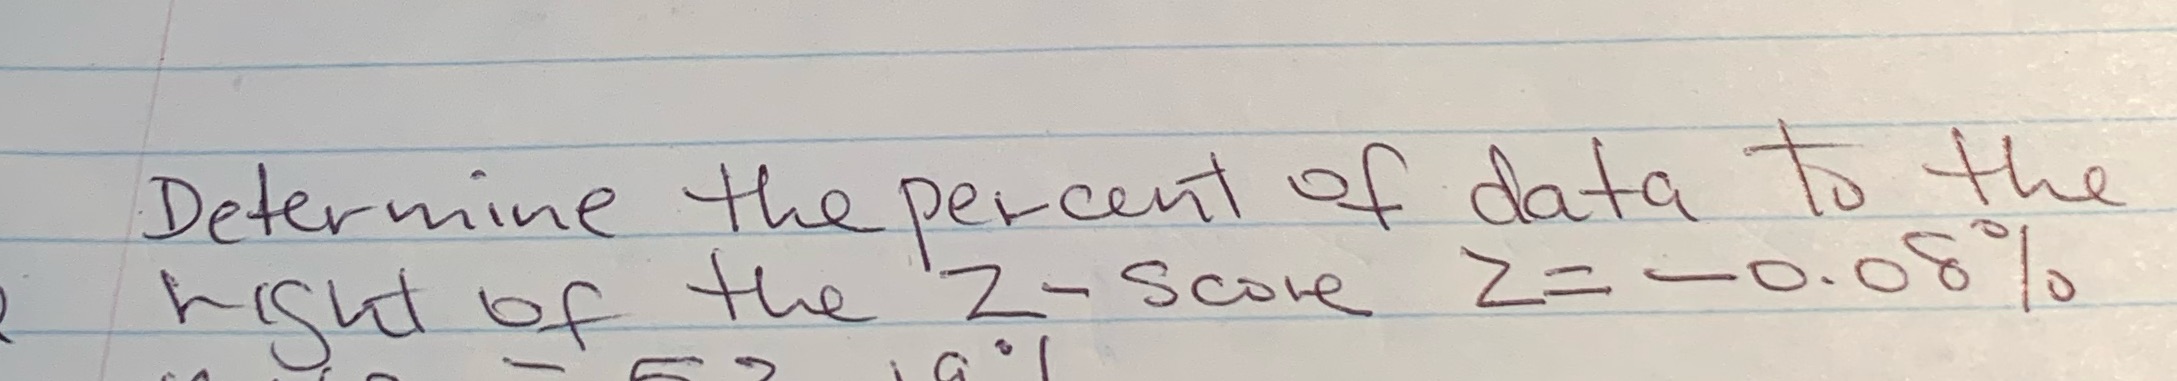 Determine the percent of data to the
right of the Z-score Z=-0.08%